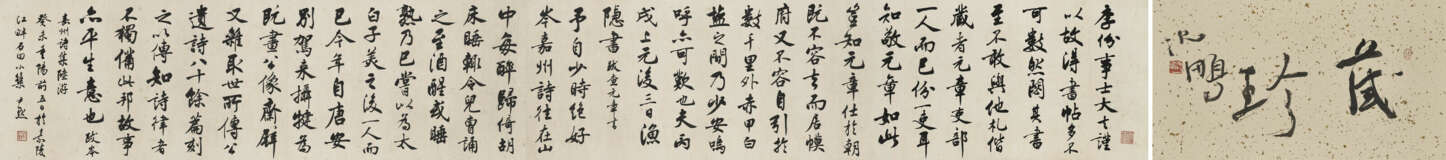 藏珍
沈鵬
李份事士大夫謹
以故得書帖多不
可數然閟其書
至不敢與他札偕
藏者元章吏部
一人而已份一吏耳
知敬元章如此
豈知元章仕於朝
既不容去而居幙
府又不容自引於
數千里外赤甲白
鹽之間乃少安嗚
呼亦可歎也夫丙
戌上元後三日漁
隱書 跋查元章書
予自少時絕好
岑嘉州詩往在山
中每醉歸倚胡
床睡輒令兒曹誦
之至酒醒或睡
熟乃已嘗以為太
白子美之後一人而
已今年自唐安
別駕來攝犍為
既畫公像齋壁
又雜取世所傳公
遺詩八十餘篇刻
之以傳知詩律者
不獨備此邦故事
亦平生意也 跋岑
嘉州詩集 陸游
癸未重陽前五日於嘉陵
江畔石田小築 尹默